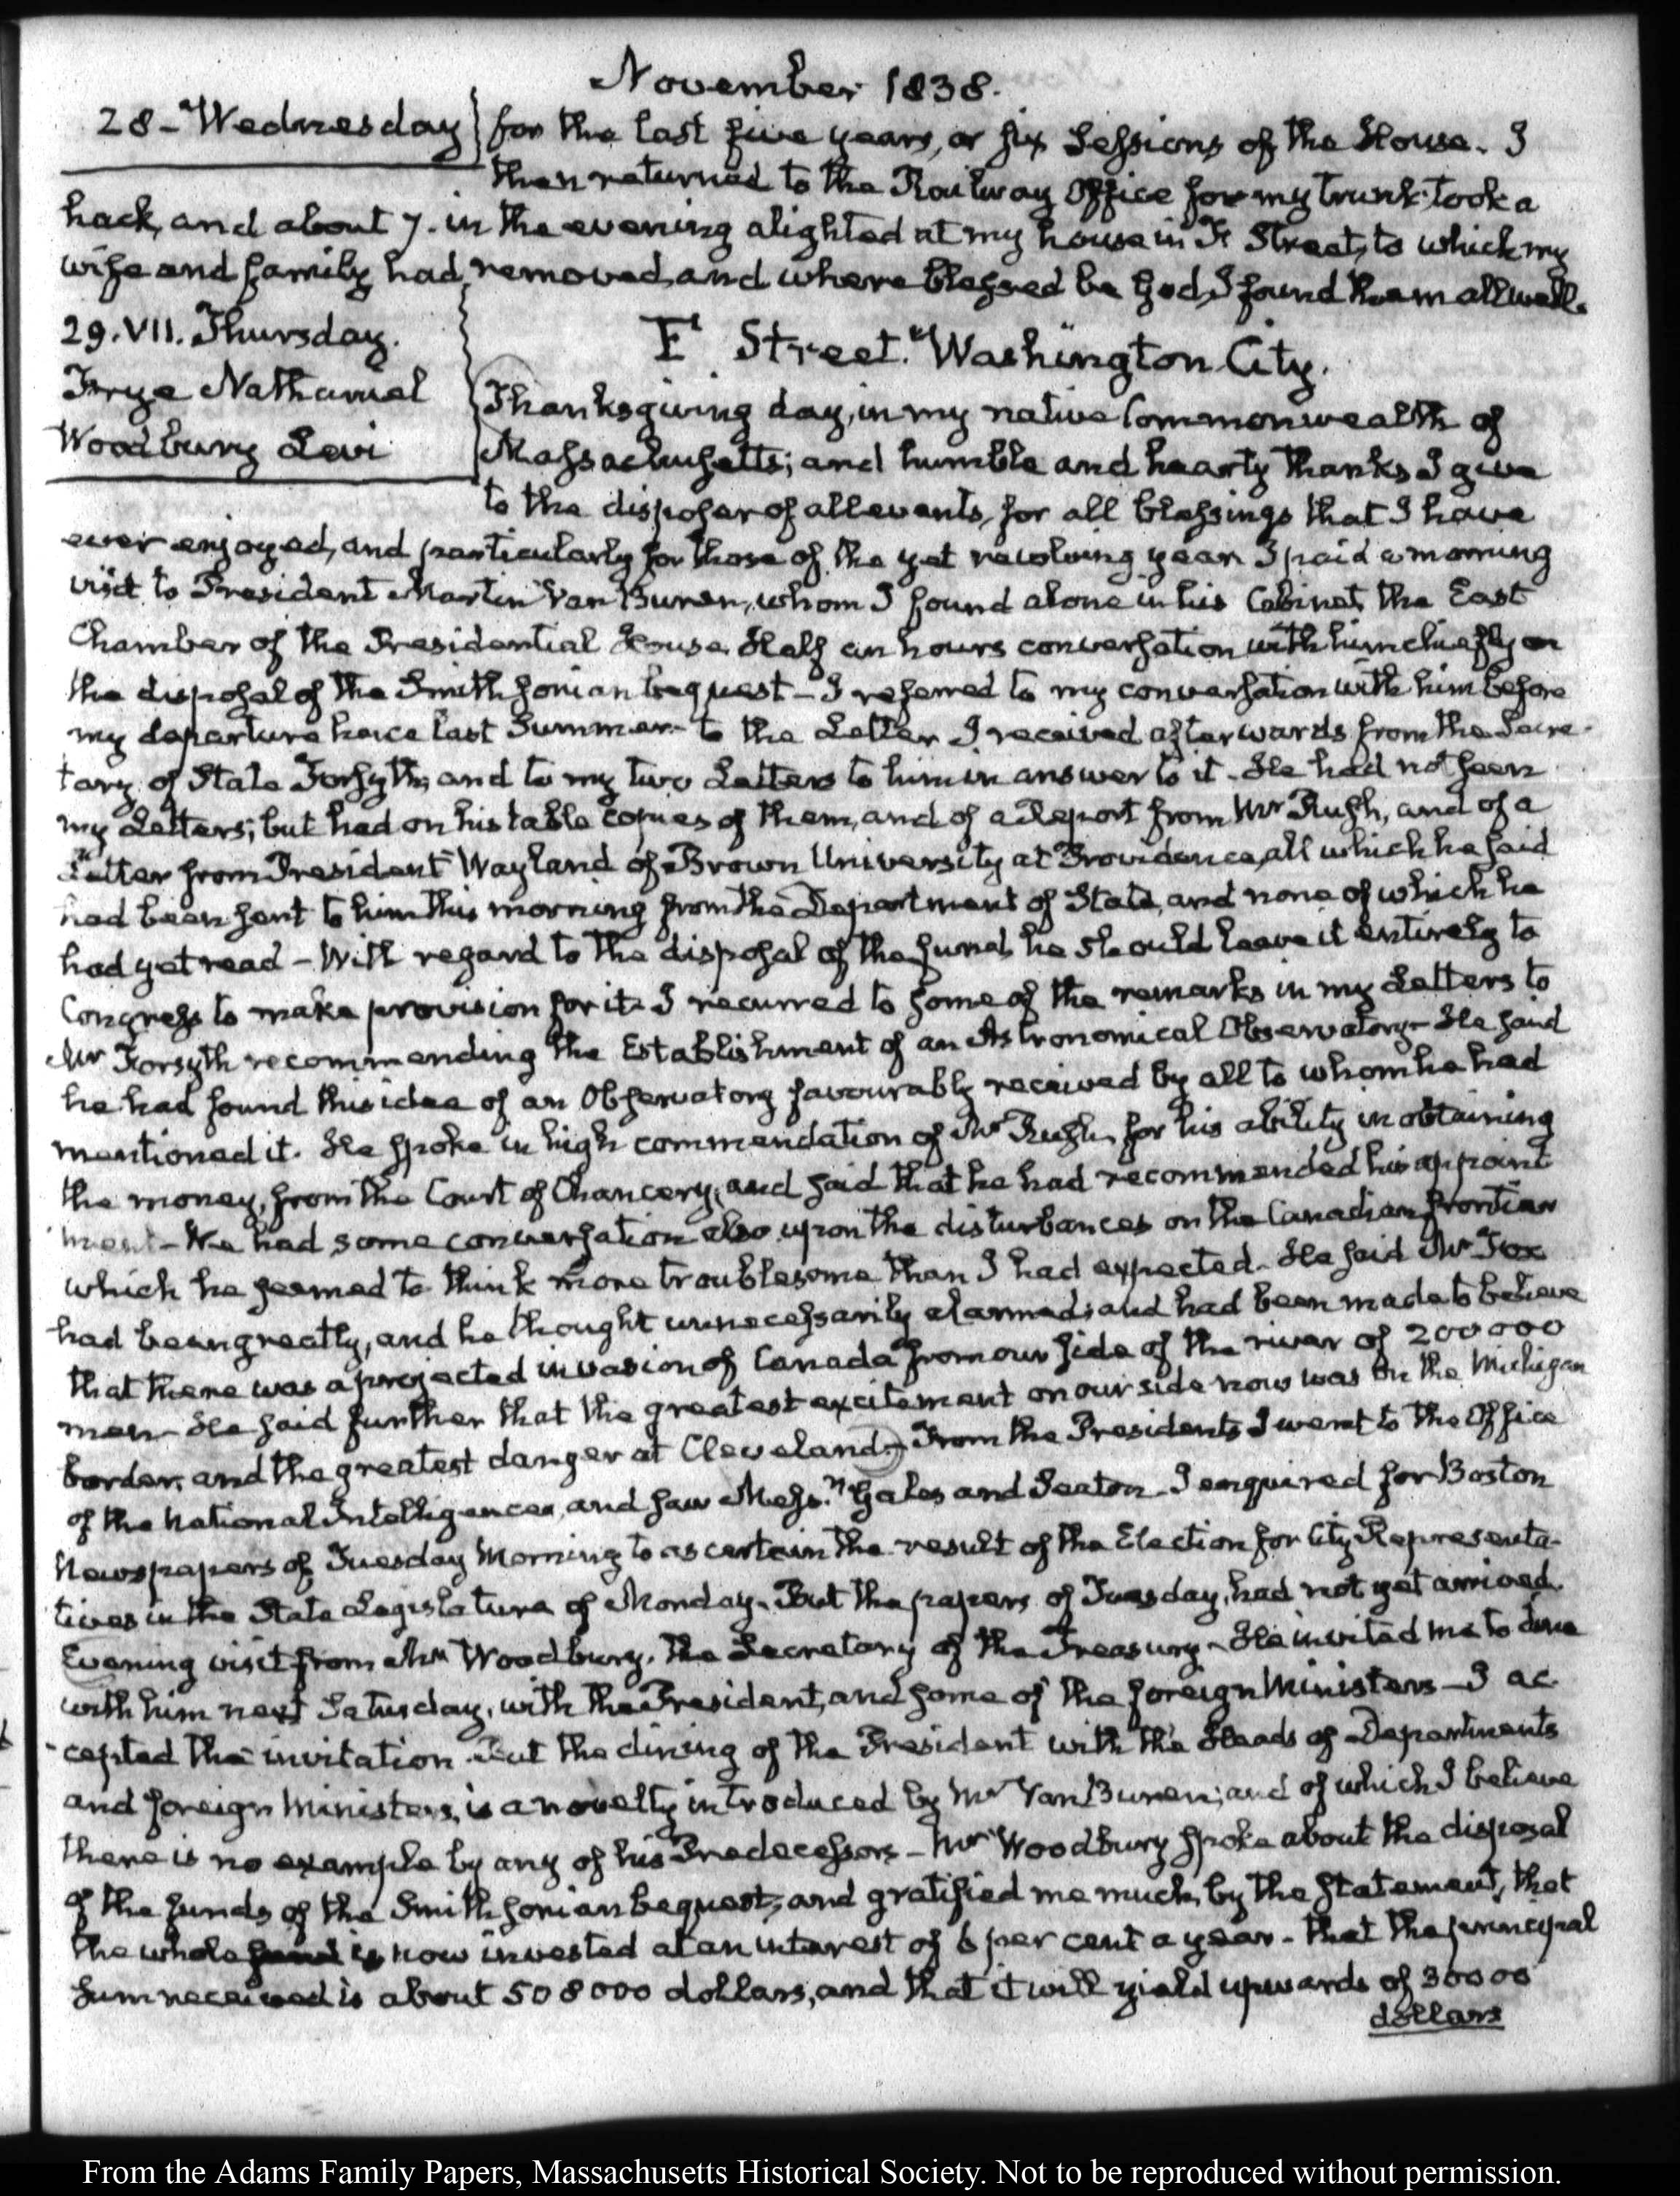 November 1838.
28 - Wednesday
for the last five years, or six Sessions of the House. I
then returned to the Railway Office for my trunk; took a
hack, and about 7. in the evening alighted at my house in F. Street, to which my
wife and family had removed, and where blessed be God, I found them all well.
29. VII. Thursday.
Frye Nathaniel
Woodbury Levi
F Street. Washington City.
Thanksgiving day, in my native Commonwealth of
Massachusetts; and humble and hearty thanks I give
to the disposer of all events, for all blessings that I have
ever enjoyed, and particularly for those of the yet revolving year. I paid a morning
visit to President Martin Van Buren, whom I found alone in his Cabinet, the East
Chamber of the Presidential House. Half an hours conversation with him chiefly on
the disposal of the Smithsonian bequest - I referred to my conversation with him before
my departure hence last Summer - to the Letter I received afterwards from the Secre-
tary of State Forsyth, and to my two Letters to him in answer to it - He had not seen
my Letters; but had on his table copies of them, and of a Report from Mr Rush, and of a
Letter from President Wayland of Brown University at Providence, all which he said
had been sent to him this morning from the Department of State, and none of which he
had yet read - With regard to the disposal of the fund, he should leave it entirely to
Congress to make provision for it - I recurred to some of the remarks in my Letters to
Mr Forsyth recommending the Establishment of an Astronomical Observatory - He said
he had found this idea of an Observatory favourably received by all to whom he had
mentioned it. He spoke in high commendation of Mr Rush, for his ability in obtaining
the money, from the Court of Chancery, and said that he had recommended his appoint
ment - We had some conversation also upon the disturbances on the Canadian frontier
which he seemed to think more troublesome than I had expected - He said Mr Fox
had been greatly, and he thought unnecessarily alarmed; and had been made to believe
that there was a projected invasion of Canada from our side of the river of 200000
men - He said further that the greatest excitement on our side now was on the Michigan
border, and the greatest danger at Cleveland - From the Presidents I went to the Office
of the National Intelligencer, and saw Messrs Gales and Seaton - I enquired for Boston
Newspapers of Tuesday Morning to ascertain the result of the Election for City Representa-
tives in the State Legislature of Monday - But the papers of Tuesday, had not yet arrived.
Evening visit from Mr Woodbury, the Secretary of the Treasury - He invited me to dine
with him next Saturday, with the President, and some of the foreign Ministers - I ac-
cepted the invitation - But the dining of the President with the Heads of Departments
and foreign Ministers, is a novelty introduced by Mr Van Buren; and of which I believe
there is no example by any of his Predecessors - Mr Woodbury spoke about the disposal
of the funds of the Smithsonian bequest; and gratified me much, by the statement, that
the whole is now invested at an interest of 6 per cent a year - that the principal
sum received is about 508000 dollars, and that it will yield upwards of 30000
dollars
From the Adams Family Papers, Massachusetts Historical Society. Not to be reproduced without permission.